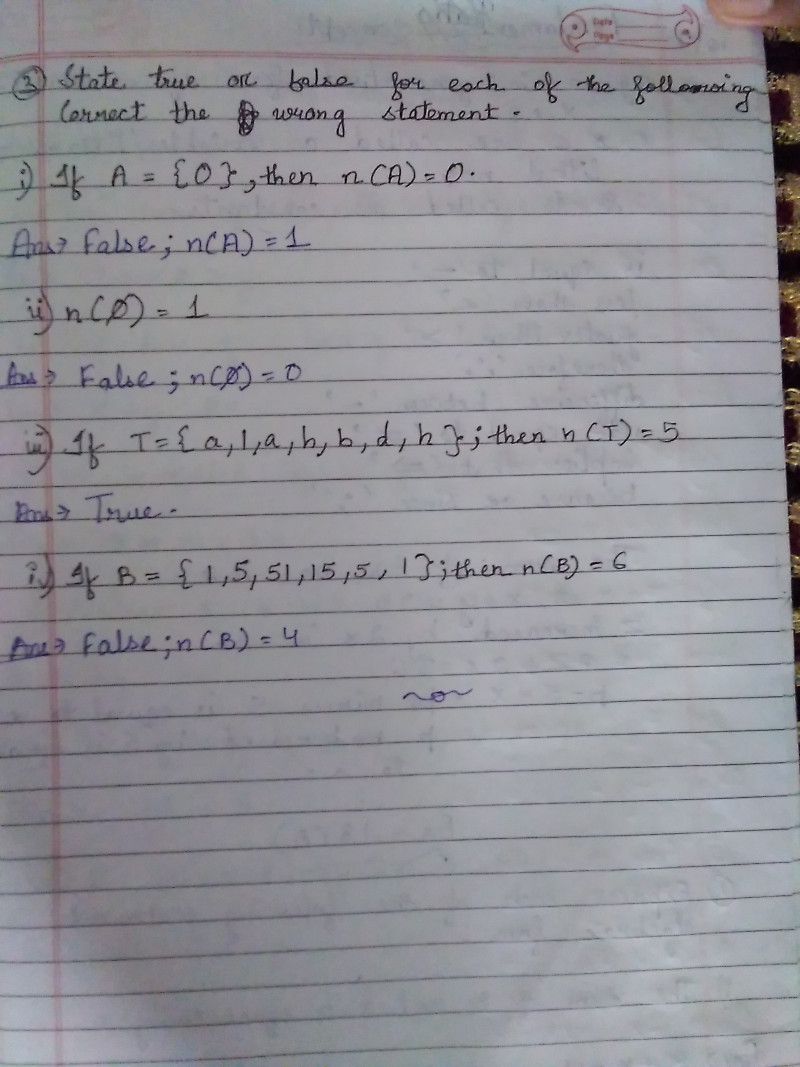 Date
Page
③ State true or false for each of the following
Correct the wrong statement.
i) If A = {0}, then n(A) = 0.
Ans→ False; n(A) = 1
ii) n(∅) = 1
Ans→ False; n(∅) = 0
iii) If T = {a, l, a, h, b, d, h}; then n(T) = 5
Ans→ True.
iv) If B = {1, 5, 51, 15, 5, 1}; then n(B) = 6
Ans→ False; n(B) = 4